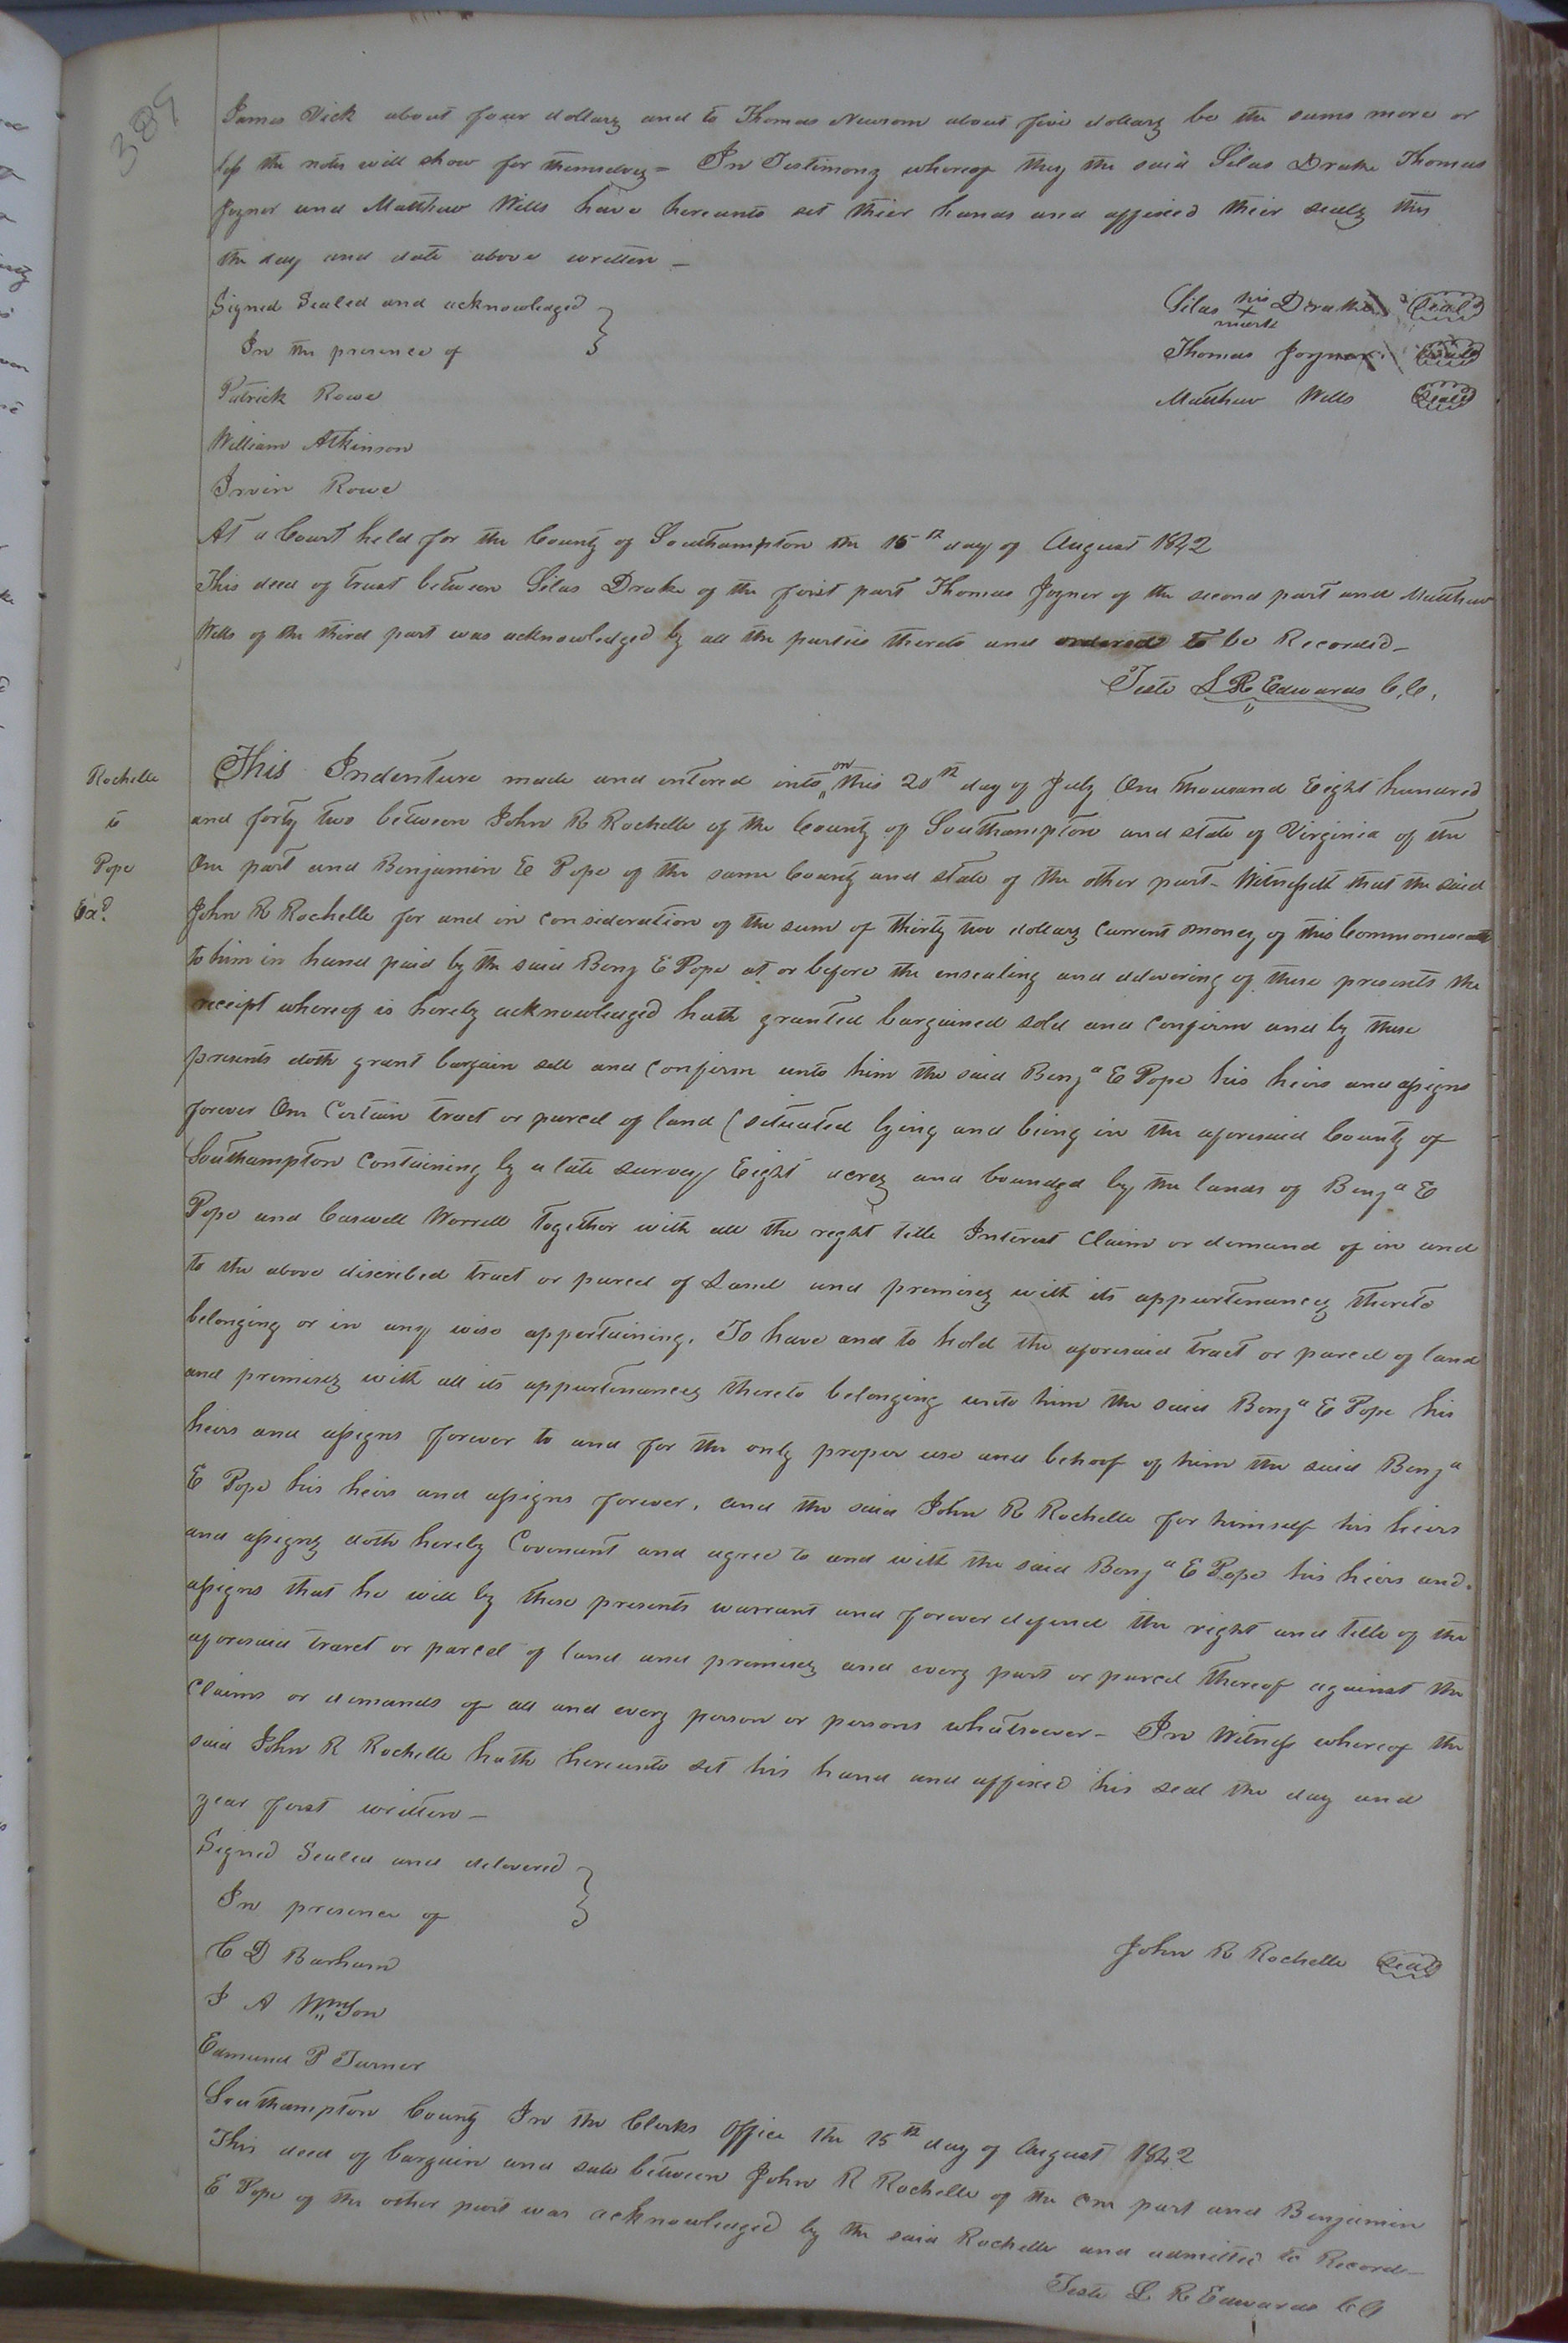 389
James Vick about four dollars and to Thomas Newsom about five dollars be the sums more or
less the notes will show for themselves = In Testimony whereof they the said Silas Drake Thomas
Joyner and Matthew Wills have hereunto set their hands and affixed their seals this
the day and date above written –
Signed Sealed and acknowledged
In the presence of
Silas his x mark Drake Seal
Thomas Joyner Seal
Matthew Wills Seal
Patrick Rowe
William Atkinson
Irvin Rowe
At a Court held for the County of Southampton the 15th day of August 1842
This deed of trust between Silas Drake of the first part Thomas Joyner of the second part and Matthew
Wills of the third part was acknowledged by all the parties thereto and ordered to be Recorded –
Teste L R Edwards C.C.
Rochelle
to
Pope
Exd.
This Indenture made and entered into on this 20th day of July One thousand Eight hundred
and forty two between John R Rochelle of the County of Southampton and state of Virginia of the
One part and Benjamin E Pope of the same County and state of the other part – Witnesseth that the said
John R Rochelle for and in consideration of the sum of thirty two dollars Current money of this Commonwealth
to him in hand paid by the said Benj E Pope at or before the ensealing and delivering of these presents the
receipt whereof is hereby acknowledged hath granted bargained sold and confirm and by these
presents doth grant bargain sell and confirm unto him the said Benja E Pope his heirs and assigns
forever One Certain tract or parcel of land (situated lying and being in the aforesaid County of
Southampton Containing by a late survey Eight acres and bounded by the lands of Benja E
Pope and Caswell Worrell together with all the right title Interest Claim or demand of in and
to the above discribed tract or parcel of Land and premises with its appurtenances thereto
belonging or in any wise appertaining. To have and to hold the aforesaid tract or parcel of land
and premises with all its appurtenances thereto belonging unto him the said Benja E Pope his
heirs and assigns forever to and for the only proper use and behoof of him the said Benja
E Pope his heirs and assigns forever, and the said John R Rochelle for himself his heirs
and assigns doth hereby Covenant and agree to and with the said Benja E Pope his heirs and
assigns that he will by these presents warrant and forever defend the right and title of the
aforesaid tract or parcel of land and premises and every part or parcel thereof against the
Claims or demands of all and every person or persons whatsoever – In Witness whereof the
said John R Rochelle hath hereunto set his hand and affixed his seal the day and
year first written –
Signed Sealed and delivered
In presence of
John R Rochelle Seal
C D Barham
J A WmSon
Edmund P Turner
Southampton County In the Clerks Office the 15th day of August 1842
This deed of bargain and sale between John R Rochelle of the one part and Benjamin
E Pope of the other part was acknowledged by the said Rochelle and admitted to Record –
Teste L R Edwards CC